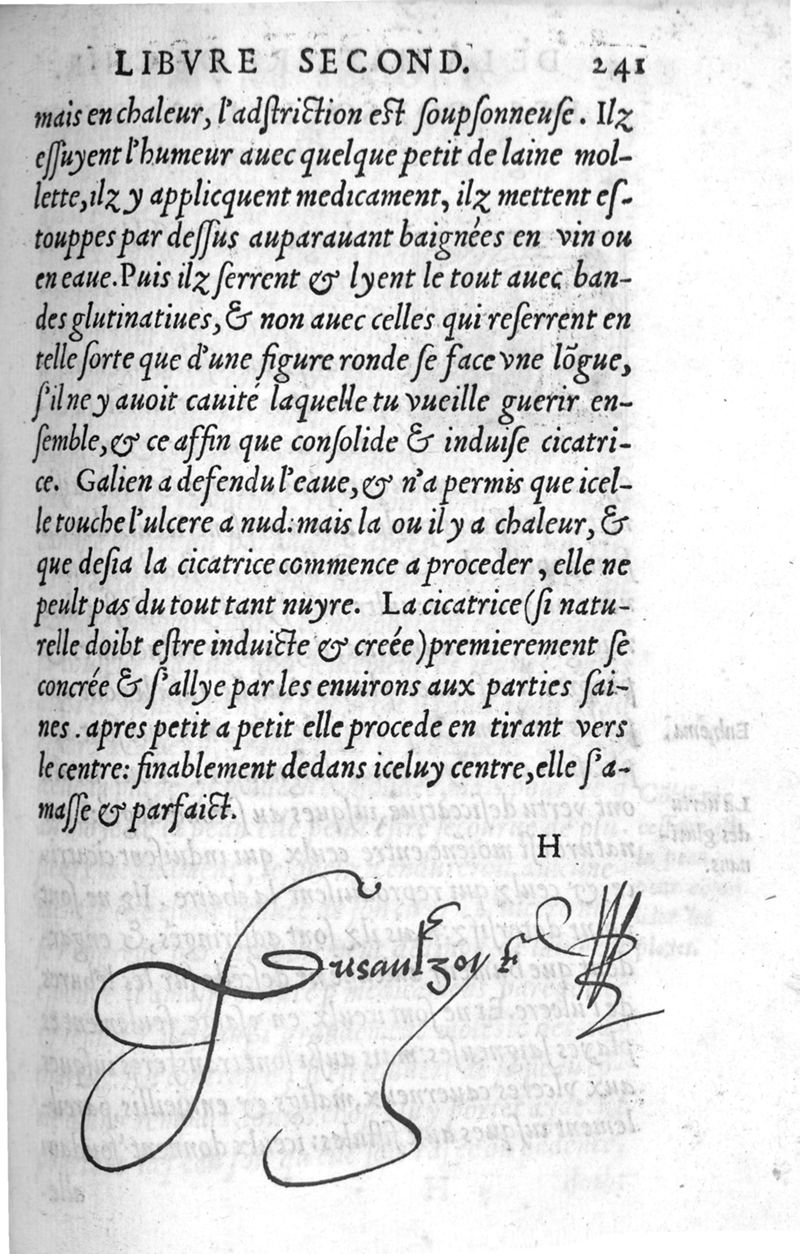 LIBVRE SECOND. 241
mais en chaleur, l'adſtriction eſt ſoupſonneuſe. Ilz
eſſuyent l'humeur auec quelque petit de laine mol-
lette, ilz y applicquent medicament, ilz mettent eſ-
touppes par deſſus auparauant baignées en vin ou
en eaue. Puis ilz ſerrent & lyent le tout auec ban-
des glutinatiues, & non auec celles qui reſerrent en
telle ſorte que d'une figure ronde ſe face vne lõgue,
ſ'il ne y auoit cauité laquelle tu vueille guerir en-
ſemble, & ce affin que conſolide & induiſe cicatri-
ce. Galien a defendu l'eaue, & n'a permis que icel-
le touche l'ulcere a nud: mais la ou il y a chaleur, &
que deſia la cicatrice commence a proceder, elle ne
peult pas du tout tant nuyre. La cicatrice (ſi natu-
relle doibt eſtre induicte & creée) premierement ſe
concrée & ſ'allye par les enuirons aux parties ſai-
nes. apres petit a petit elle procede en tirant vers
le centre: finablement dedans iceluy centre, elle ſ'a-
maſſe & parfaict.
H